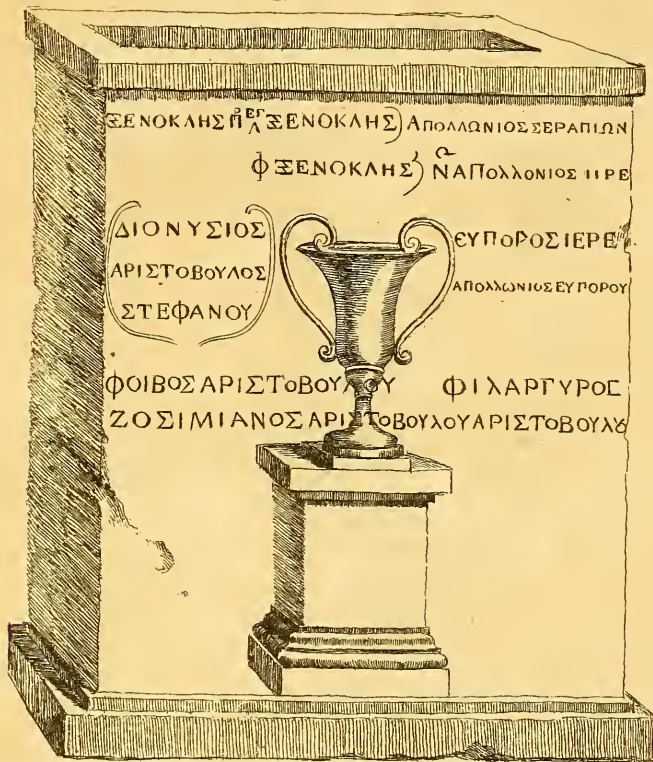 ΞΕΝΟΚΛΗΣ ΞΕΝΟΚΛΗΣ) ΑΠΟΛΛΩΝΙΟΣΣΕΡΑΠΙΩΝ
ΦΞΕΝΟΚΛΗΣ) ΑΠΟΛΛΟΝΙΟΣ ΙΙΡΕ
ΔΙΟΝΥΣΙΟΣ
ΑΡΙΣΤΟΒΟΥΛΟΣ
ΣΤΕΦΑΝΟΥ
ΕΥΠΟΡΟΣΙΕΡΕ
ΑΠΟΛΛΩΝΙΟΣΕΥΠΟΡΟΥ
ΦΟΙΒΟΣΑΡΙΣΤΟΒΟΥΛΟΥ ΦΙΛΑΡΓΥΡΟΣ
ΖΟΣΙΜΙΑΝΟΣΑΡΙΣΤΟΒΟΥΛΟΥΑΡΙΣΤΟΒΟΥΛȢ